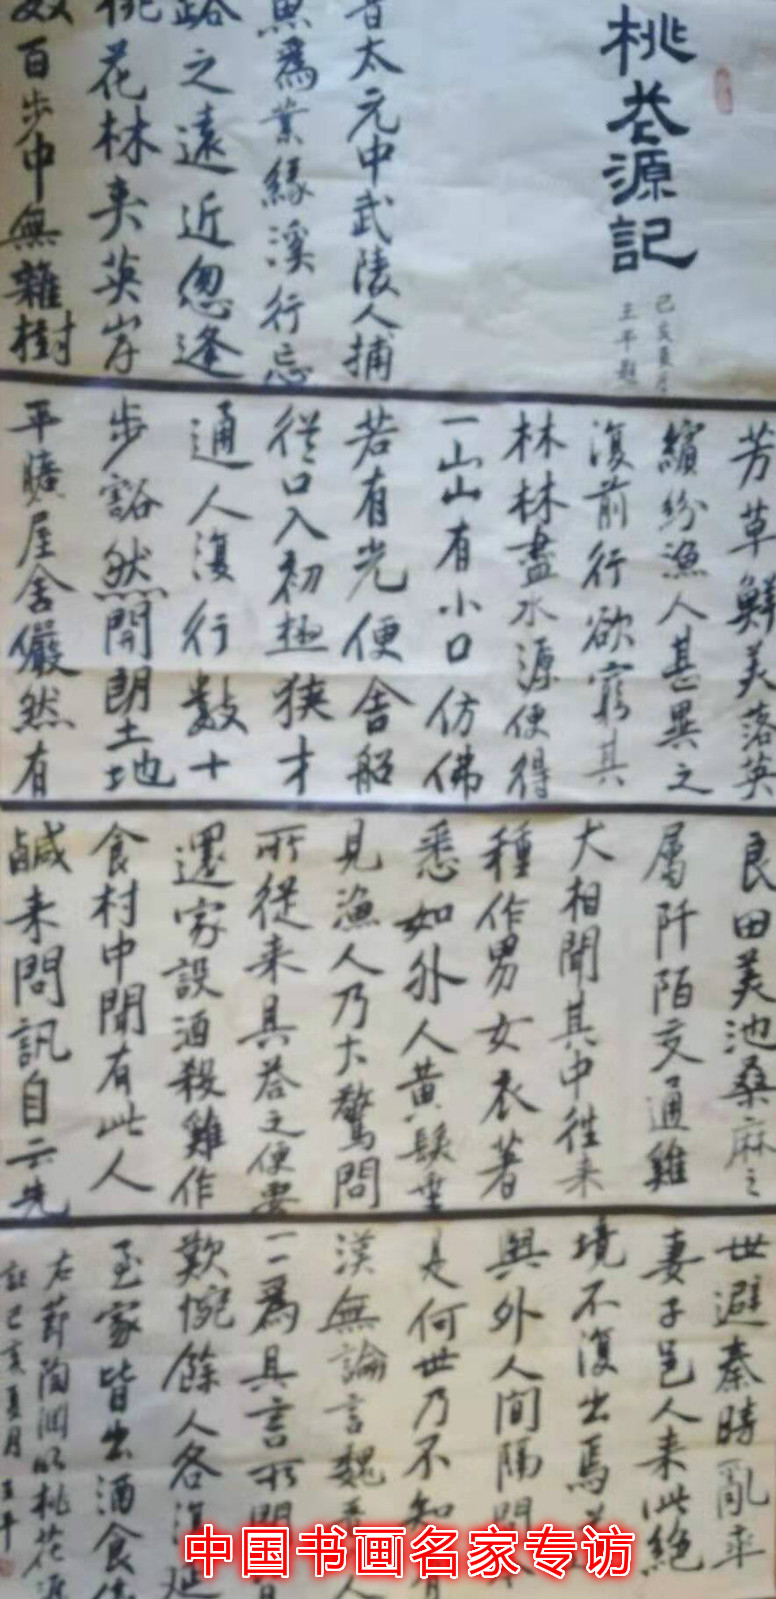 桃花源記
己亥夏月
王平題
晉太元中武陵人捕
魚爲業緣溪行忘
路之遠近忽逢
桃花林夹英岸
数百步中無雜樹
芳草鮮美落英
繽紛漁人甚異之
復前行欲窮其
林林盡水源便得
一山山有小口仿佛
若有光便舍船
從口入初極狹才
通人復行數十
步豁然開朗土地
平曠屋舍儼然有
良田美池桑麻之
屬阡陌交通雞
犬相聞其中往来
種作男女衣著
悉如外人黄髮垂
見漁人乃大驚問
所從来具答之便要
還家設酒殺雞作
食村中聞有此人
鹹来問訊自云先
世避秦時亂率
妻子邑人来此絶
境不復出焉
與外人間隔問
是何世乃不知有
漢無論言魏晉人
一一爲具言所聞皆
歎惋餘人各復延
至家皆出酒食
右節陶淵明桃花源
記己亥夏月王平
中国书画名家专访